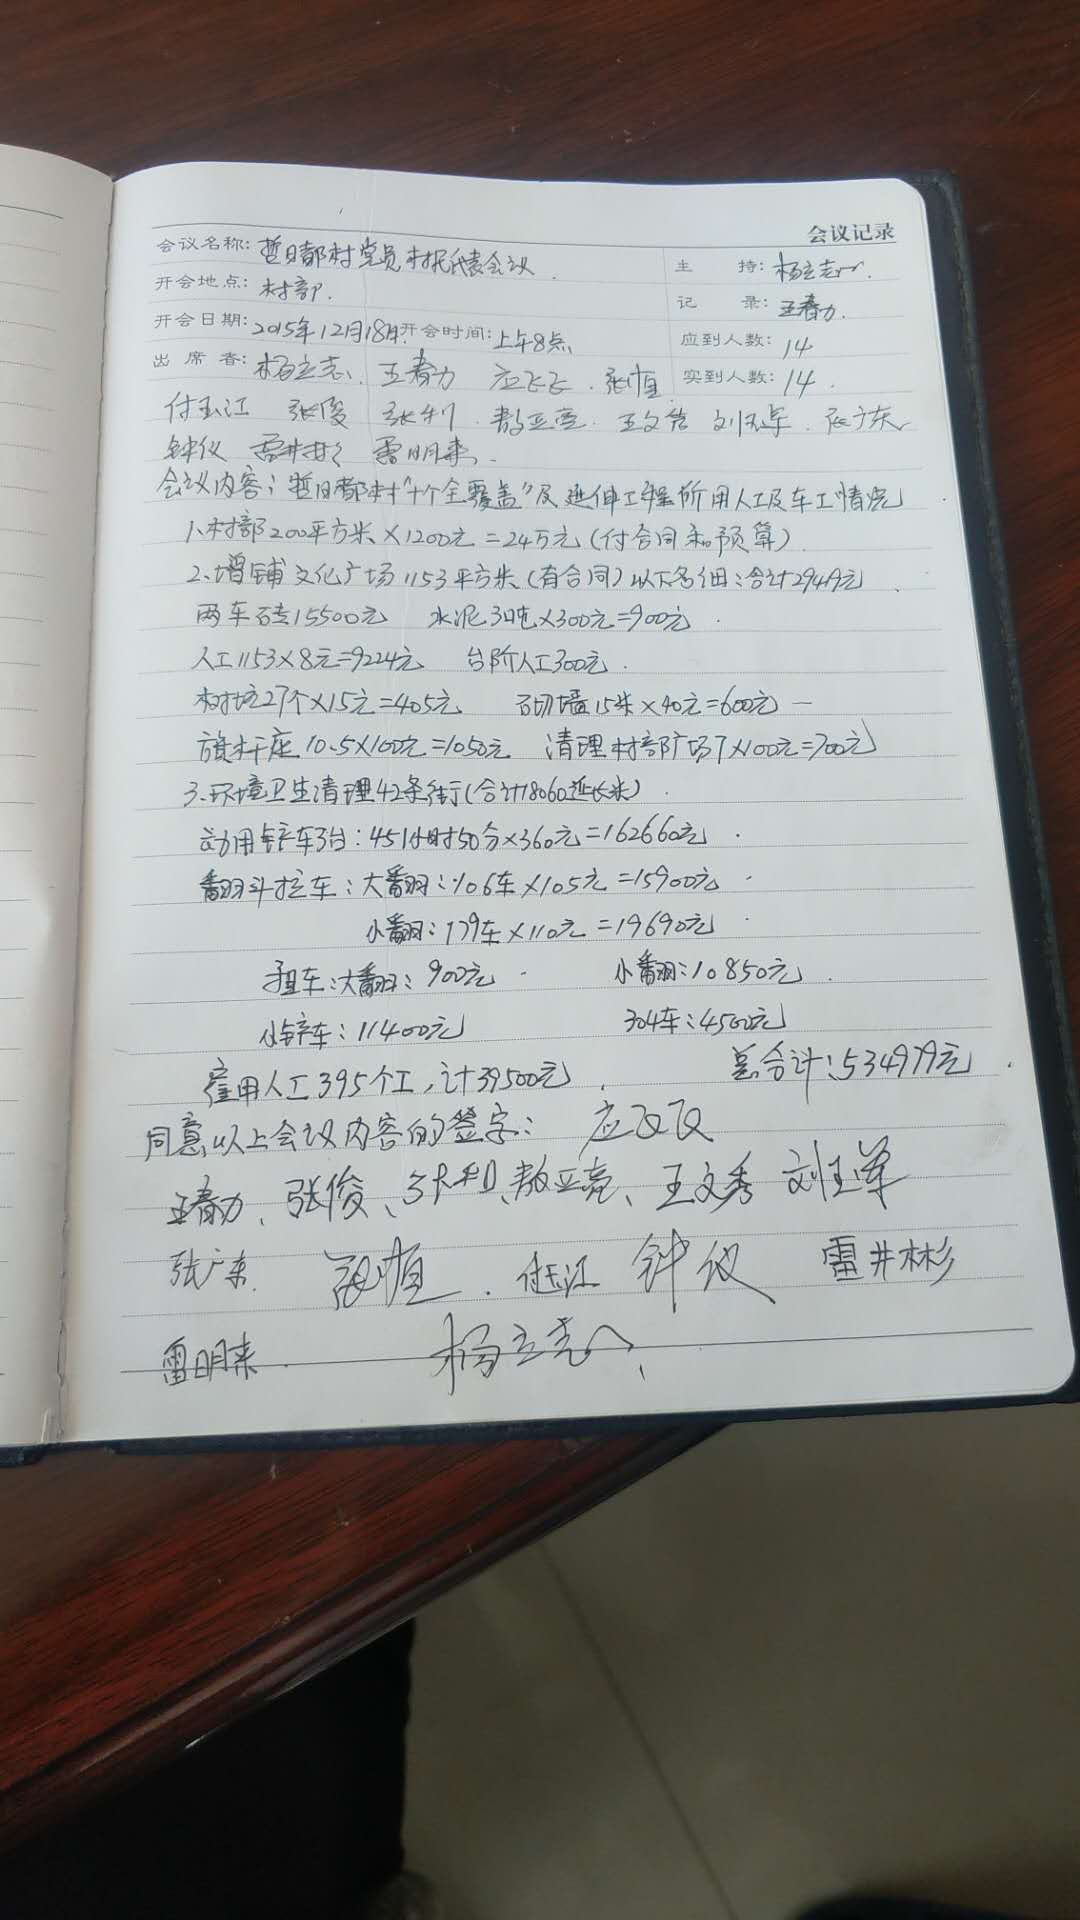 会议记录
会议名称: 哲日都村党员村民代表会议 主 持: 杨立志
开会地点: 村部. 记 录: 王春力.
开会日期: 2015年12月18日 开会时间: 上午8点 应到人数: 14
出 席 者: 杨立志 王春力 应飞飞 张恒 实到人数: 14.
付玉江 张俊 张利 敖亚亮 王文秀 刘玉军 张广东
钟仪 雷井彬 雷明来
会议内容: 哲日都村"十个全覆盖"及延伸工程所用人工及车工情况
1.村部200平方米×1200元=24万元(付合同和预算)
2.增铺文化广场1153平方米(有合同)以下名细:合计29479元
两车砖15500元 水泥3吨×300元=900元
人工1153×8元=9224元 台阶人工300元.
树坑27个×15元=405元 石切墙15米×40元=600元
旗杆座10.5×100元=1050元 清理村部广场7×100元=700元
3.环境卫生清理42条街(合计18060延长米)
动用铲车3台:451小时50分×360元=162660元
翻斗拉车:大翻:106车×105元=15900元
小翻:179车×110元=19690元
租车:大翻:900元 小翻:10850元
小铲车:11400元 304车:4500元
雇用人工395个工,计39500元 总合计:534979元
同意以上会议内容的签字: 应飞飞
王春力、张俊、张利、敖亚亮、王文秀 刘玉军
张广东 张恒 付玉江 钟仪 雷井彬
雷明来 杨立志